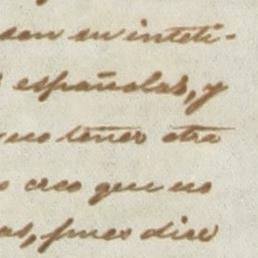 con su inteli-
españolas, y
no tener otra
creo que no
as, pues dice